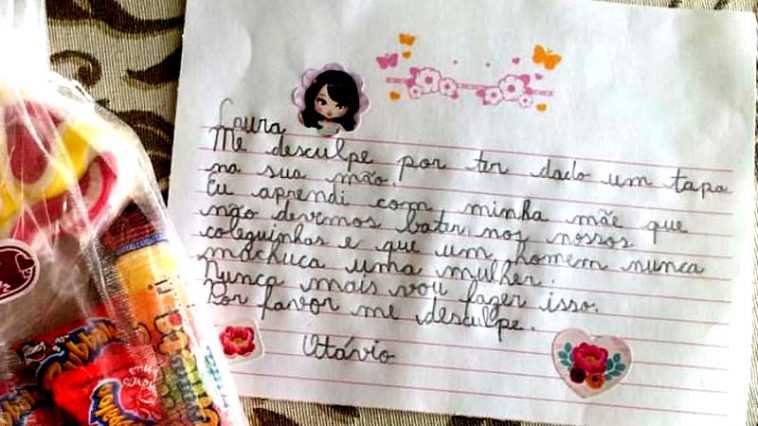 Laura
Me desculpe por ter dado um tapa
na sua mão.
Eu aprendi com minha mãe que
não devemos bater nos nossos
coleguinhas e que um homem nunca
machuca uma mulher.
Nunca mais vou fazer isso.
Por favor me desculpe.
Otávio